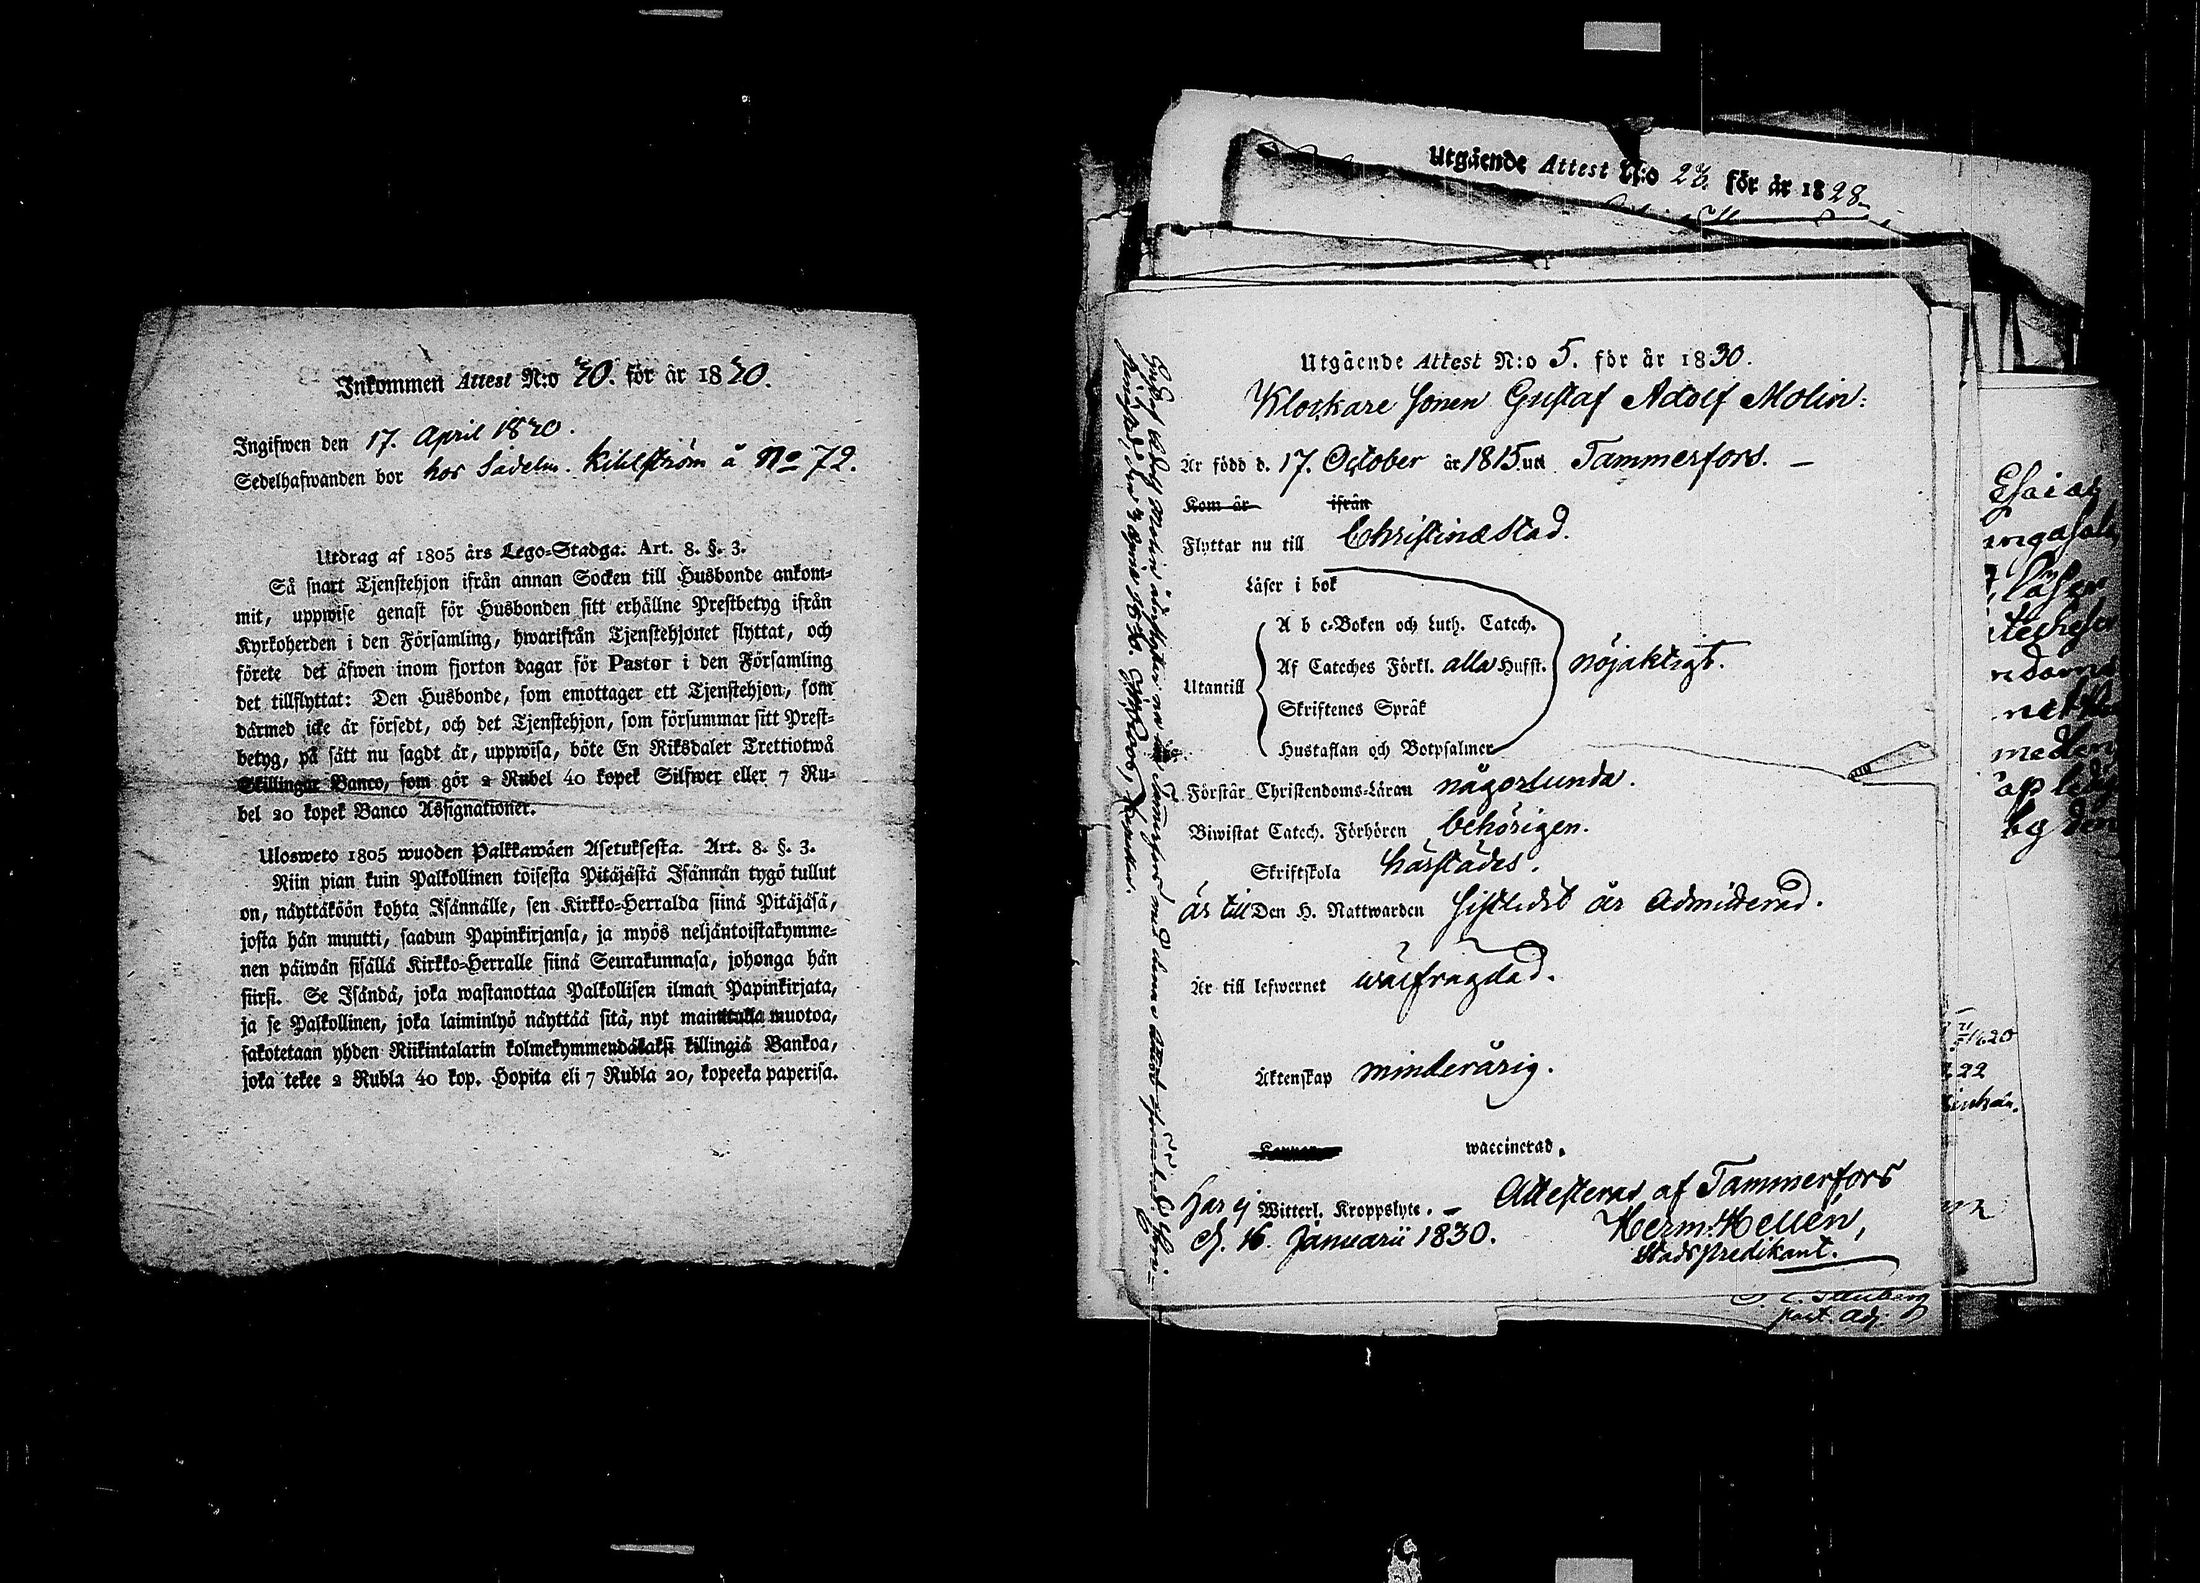 Inkommen Attest N:o 20. för år 1820.
Ingifwen den 17. April 1820.
Sedelhafwanden bor hos Sadelm. Kihlström å No 72.
Utdrag af 1805 års Lego-Stadga. Art. 8. §. 3.
Så snart Tjenstehjon ifrån annan Socken till Husbonde ankom-
mit, uppwise genast för Husbonden sitt erhållne Prestbetyg ifrån
Kyrkoherden i den Församling, hwarifrån Tjenstehjonet flyttat, och
förete det äfwen inom fjorton dagar för Pastor i den Församling
det tillflyttat: Den Husbonde, som emottager ett Tjenstehjon, som
därmed icke är försedt, och det Tjenstehjon, som försummar sitt Prest-
betyg, på sätt nu sagdt är, uppwisa, böte En Riksdaler Trettiotwå
Skillingar Banco, som gör 2 Rubel 40 kopek Silfwer eller 7 Ru-
bel 20 kopek Banco Assignationer.
Ulosweto 1805 wuoden Palkkawäen Asetuksesta. Art. 8. §. 3.
Niin pian kuin Palkollinen toisesta Pitäjästä Isännän tygö tullut
on, näyttäköön kohta Isännälle, sen Kirkko-Herralda siinä Pitäjäsä,
josta hän muutti, saadun Papinkirjansa, ja myös neljäntoistakymme-
nen päiwän sisällä Kirkko-Herralle siinä Seurakunnasa, johonga hän
siirsi. Se Isändä, joka wastanottaa Palkollisen ilman Papinkirjata,
ja se Palkollinen, joka laiminlyö näyttää sitä, nyt mainitulla muotoa,
sakotetaan yhden Riikintalarin kolmekymmendäkaksi killingiä Bankoa,
joka tekee 2 Rubla 40 kop. Hopita eli 7 Rubla 20, kopeeka paperisa.
Utgående Attest N:o 23. för år 1828.
Utgående Attest N:o 5. för år 1830.
Klockare Sonen Gustaf Adolf Molin:
Är född d. 17. October år 1815 uti Tammerfors.
Kom år ifrån
Flyttar nu till Christinæstad.
Läser i bok
A b c-Boken och Luth. Catech.
Af Cateches Förkl. alla Hufst. nöjaktigt.
Utantill
Skriftenes Språk
Hustaflan och Botpsalmer
Förstår Christendoms-Läran någorlunda.
Biwistat Catech. Förhören behörigen.
Skriftskola härstädes.
är till Den H. Nattwarden sistledit år Admitterad.
Är till lefwernet wälfrägdad.
Äktenskap minderårig.
waccinerad.
Har ej Witterl. Kroppslyte. Attesteras af Tammerfors
d. 16. Januarii 1830. Herm: Hellén,
Stadspredikant.
Past. Adj.
Esaias
läser
22